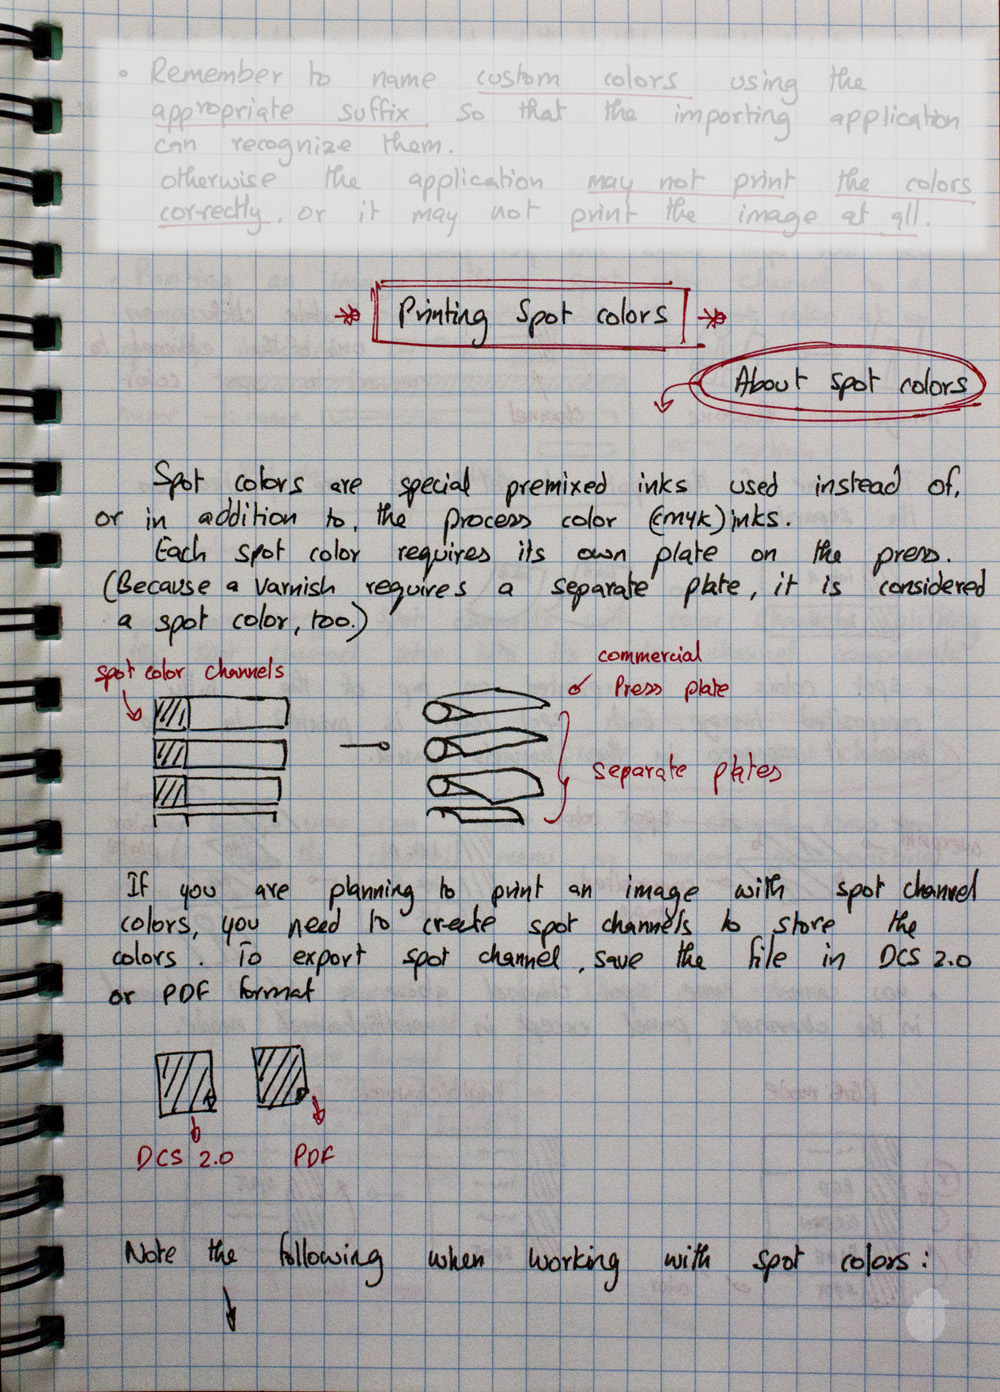 • Remember to name custom colors using the
appropriate suffix so that the importing application
can recognize them.
otherwise the application may not print the colors
correctly, or it may not print the image at all.
Printing Spot colors
About spot colors
Spot colors are special premixed inks used instead of,
or in addition to, the process color (CMYK) inks.
Each spot color requires its own plate on the press.
(Because a varnish requires a separate plate, it is considered
a spot color, too.)
spot color channels
commercial
Press plate
separate plates
If you are planning to print an image with spot channel
colors, you need to create spot channels to store the
colors. To export spot channel, save the file in DCS 2.0
or PDF format
DCS 2.0 PDF
Note the following when working with spot colors: